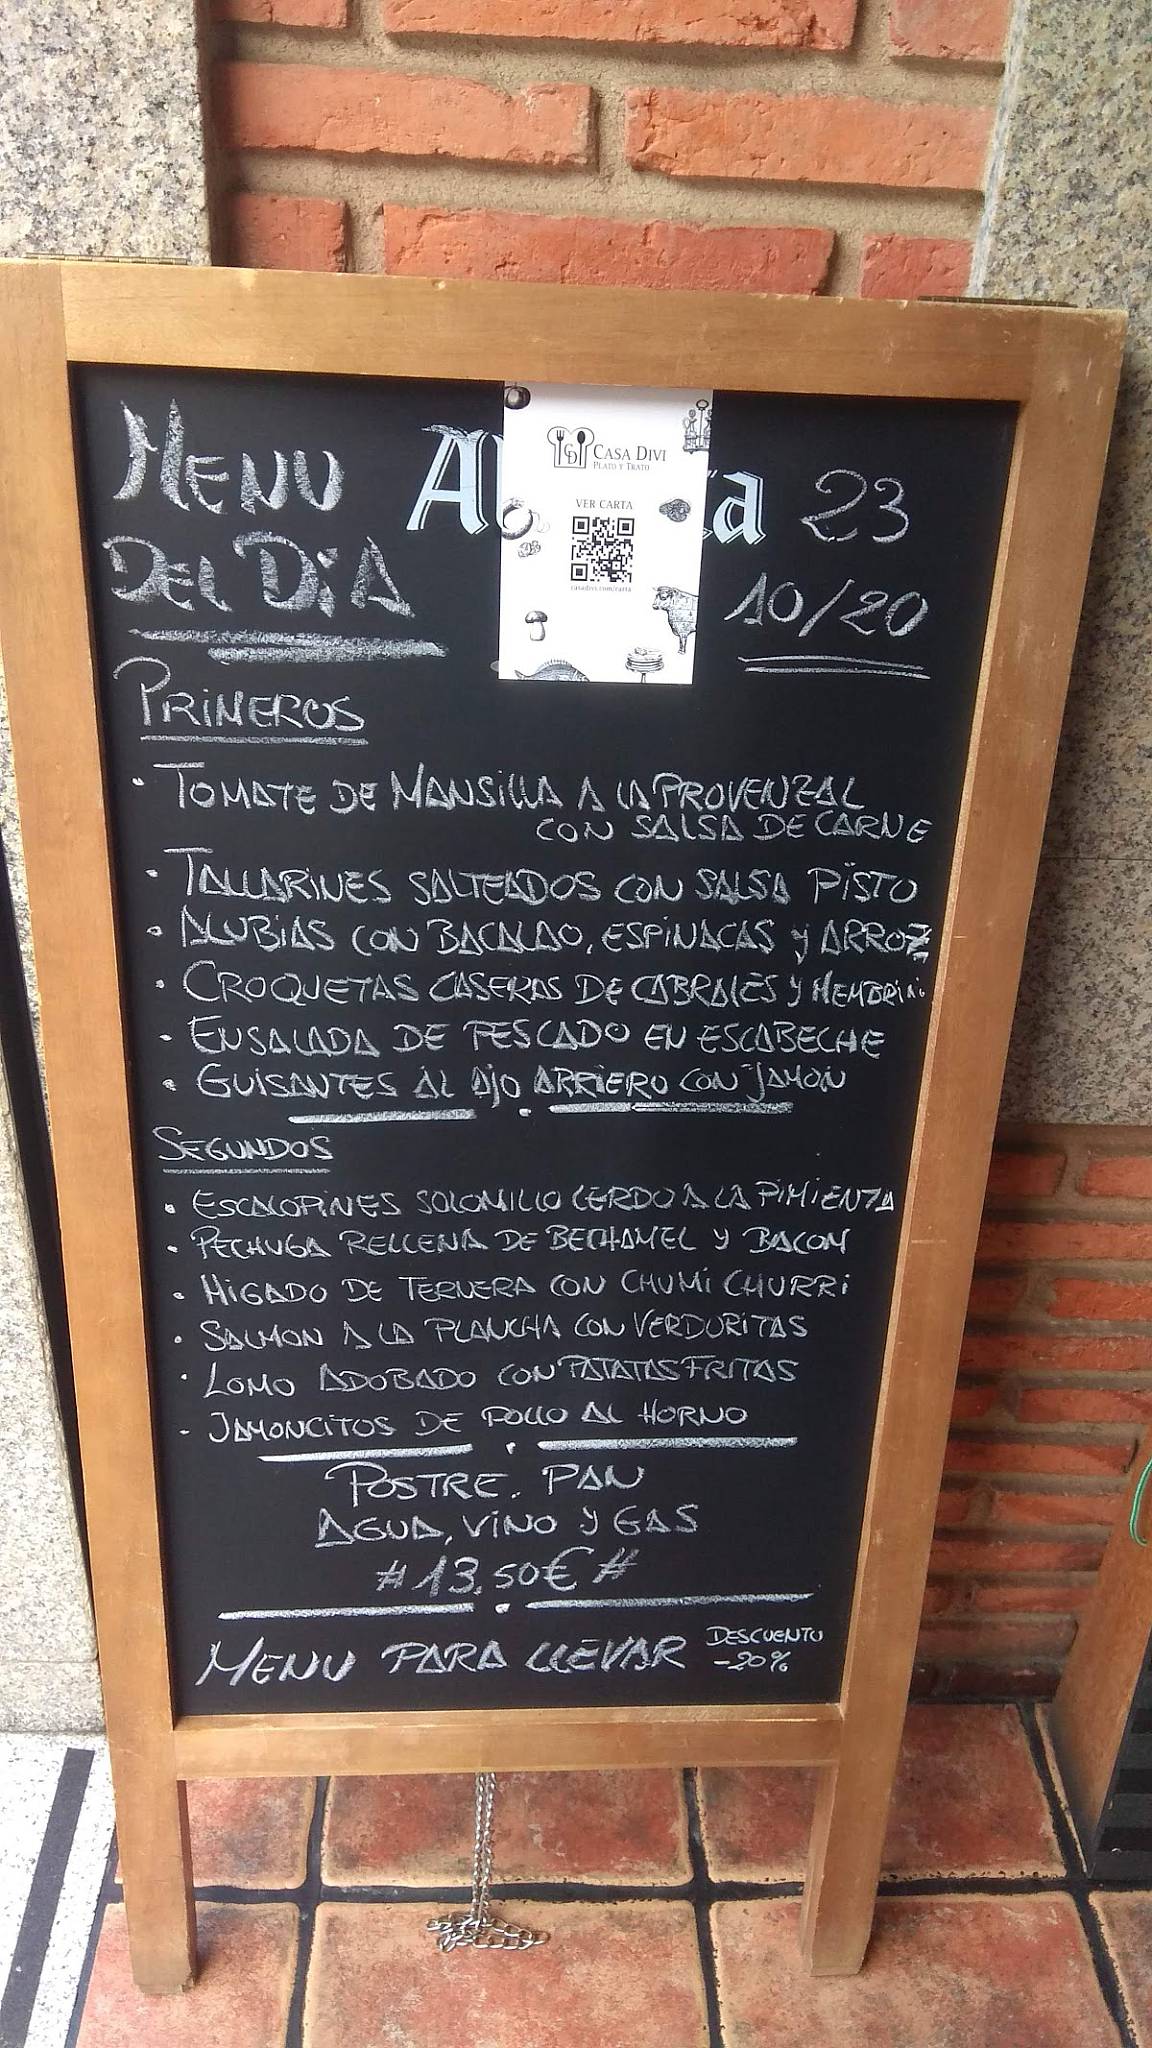 MENU
DEL DIA
CASA DIVI
PLATO Y TRATO
VER CARTA
casadivi.com/carta
23
10/20
PRIMEROS
· TOMATE DE MANSILLA A LA PROVENZAL
CON SALSA DE CARNE
· TALLARINES SALTEADOS CON SALSA PISTO
· ALUBIAS CON BACALAO, ESPINACAS Y ARROZ
· CROQUETAS CASERAS DE CABRALES Y MEMBRILLO
· ENSALADA DE PESCADO EN ESCABECHE
· GUISANTES AL AJO ARRIERO CON JAMON
SEGUNDOS
· ESCALOPINES SOLOMILLO CERDO A LA PIMIENTA
· PECHUGA RELLENA DE BECHAMEL Y BACON
· HIGADO DE TERNERA CON CHUMI CHURRI
· SALMON A LA PLANCHA CON VERDURITAS
· LOMO ADOBADO CON PATATAS FRITAS
- JAMONCITOS DE POLLO AL HORNO
POSTRE. PAN
AGUA, VINO Y GAS
# 13,50€ #
MENU PARA LLEVAR DESCUENTO
-20%